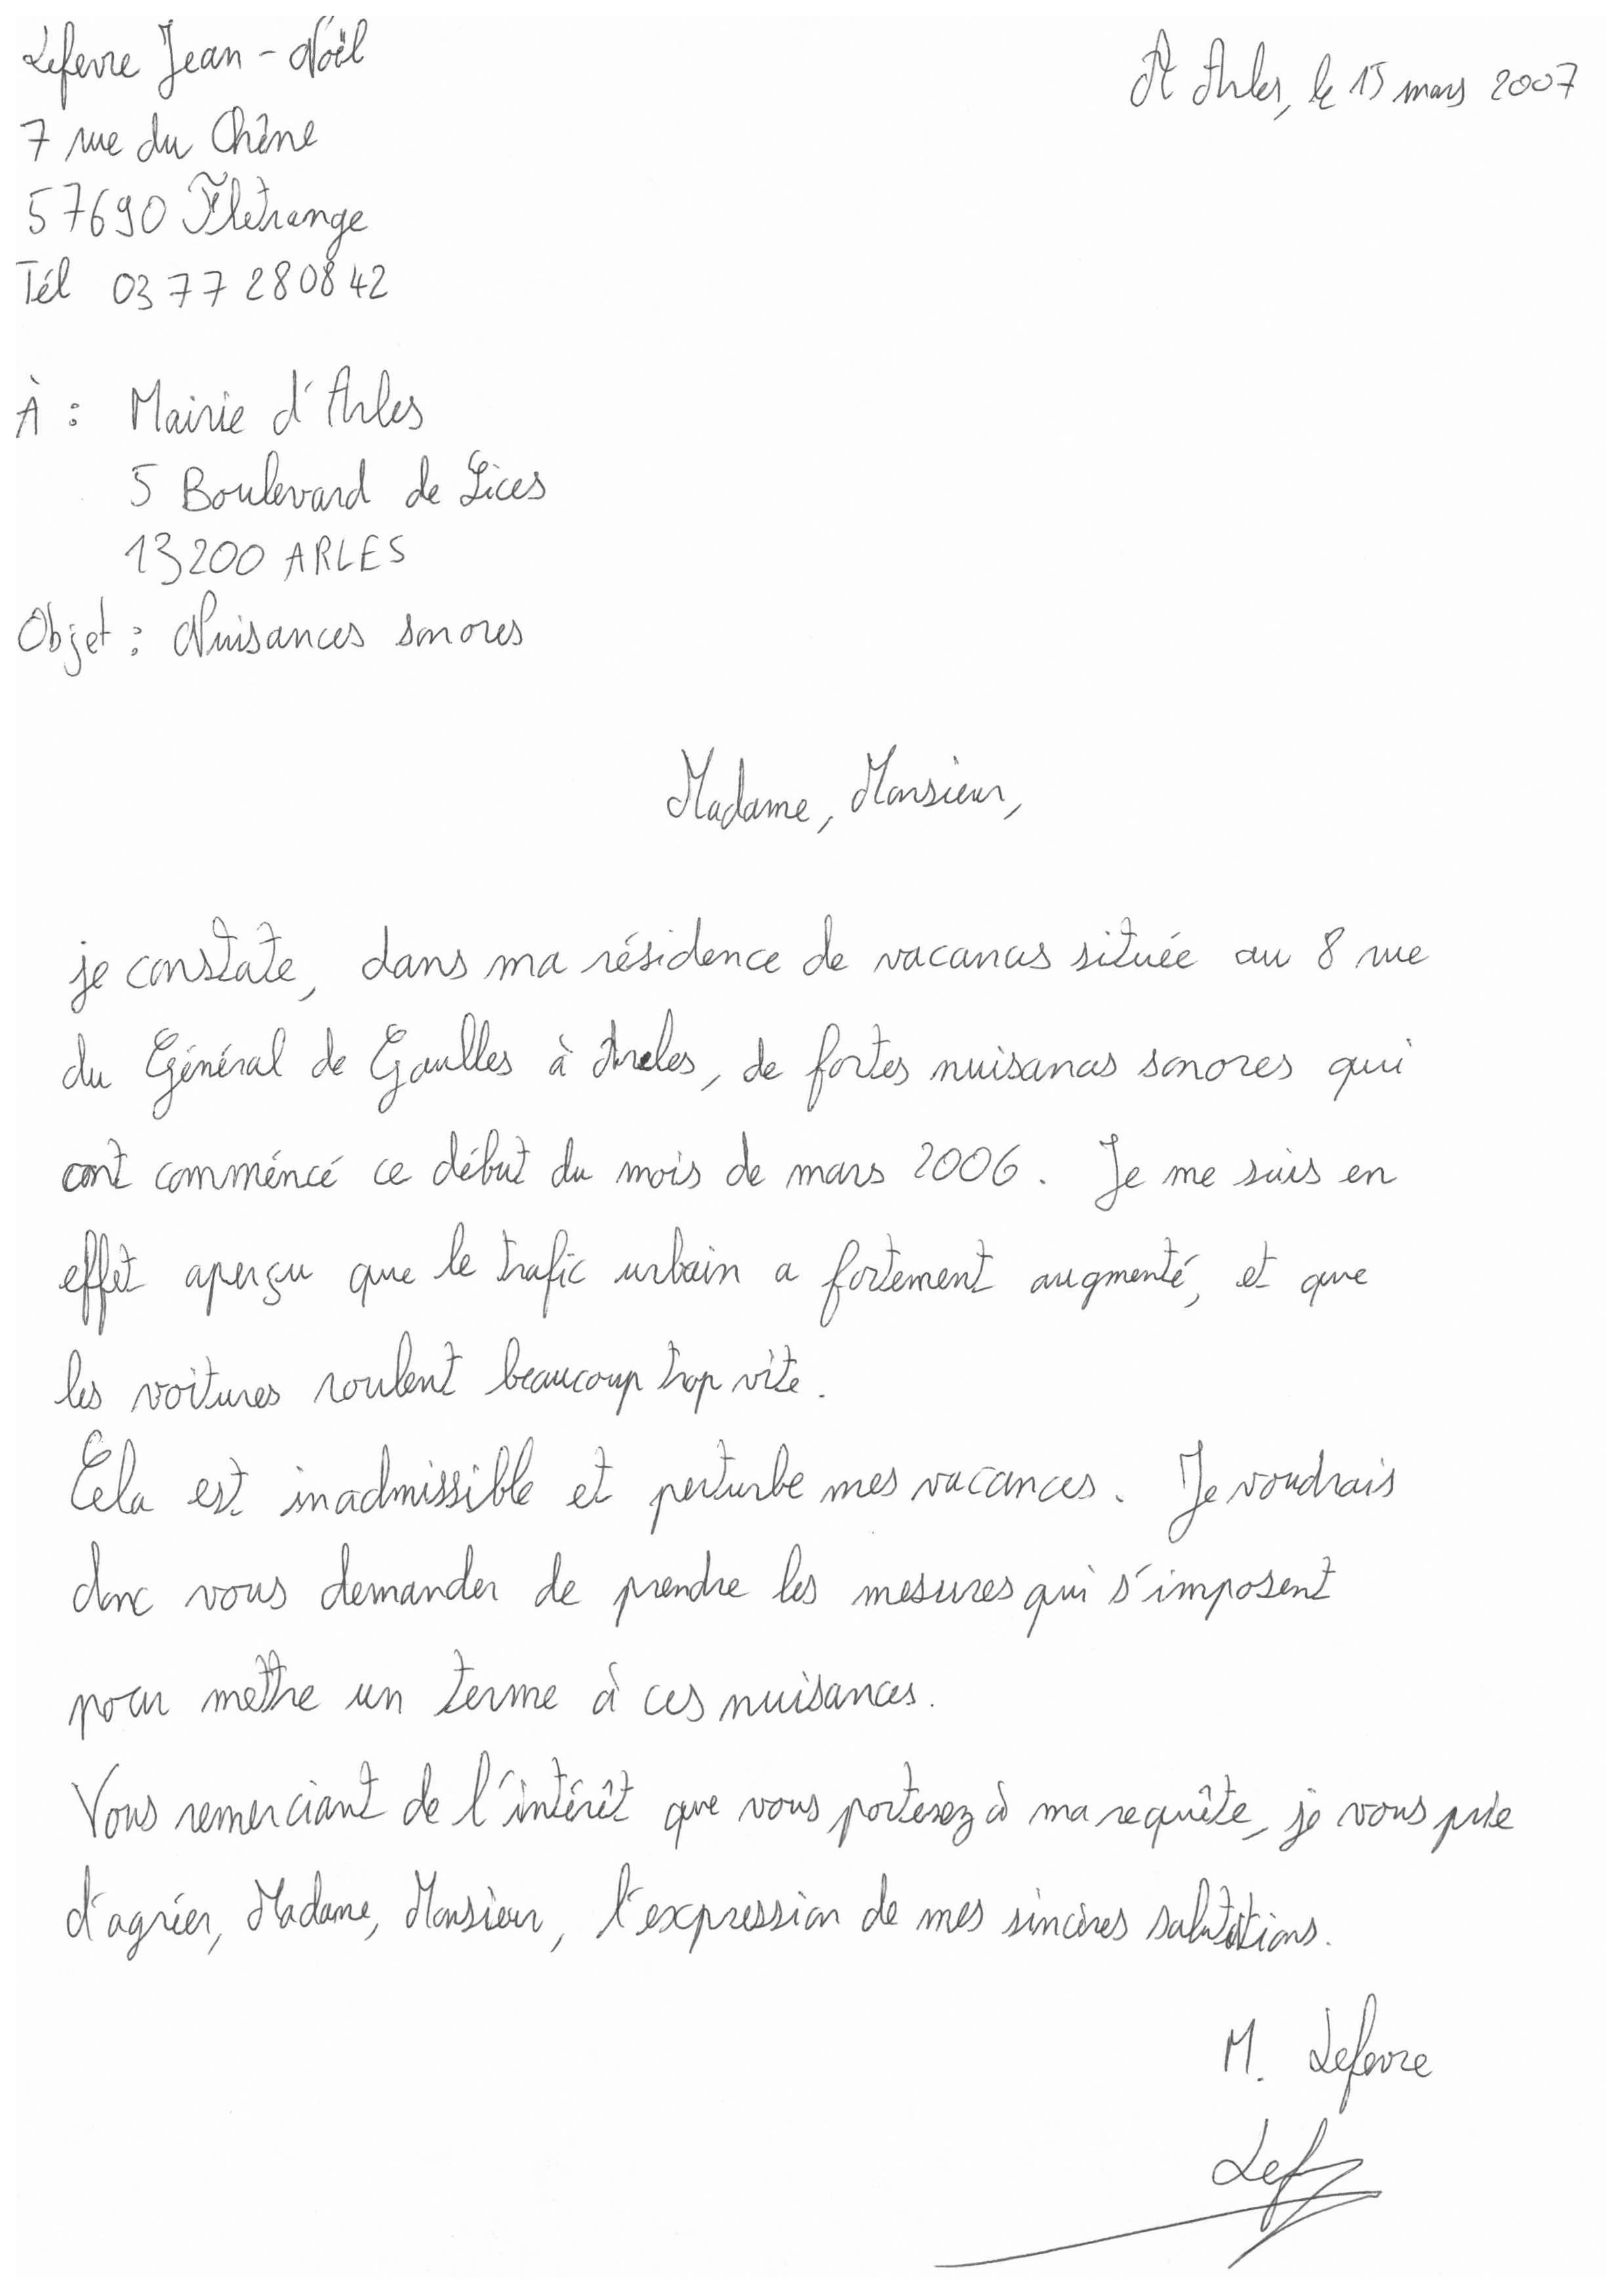 Lefevre Jean-Noël
A Arles, le 15 mars 2007
7 rue du Chêne
57690 Flétrange
Tél 03 77 28 08 42
À : Mairie d'Arles
5 Boulevard de Lices
13200 ARLES
Objet : Nuisances sonores
Madame, Monsieur,
je constate, dans ma résidence de vacances située au 8 rue
du Général de Gaulles à Arles, de fortes nuisances sonores qui
ont comméncé ce début du mois de mars 2006. Je me suis en
effet aperçu que le trafic urbain a fortement augmenté, et que
les voitures roulent beaucoup trop vite.
Cela est inadmissible et perturbe mes vacances. Je voudrais
donc vous demander de prendre les mesures qui s'imposent
pour mettre un terme à ces nuisances.
Vous remerciant de l'intérêt que vous porterez à ma requête, je vous prie
d'agréer, Madame, Monsieur, l'expression de mes sincères salutations.
M. Lefevre
Lef